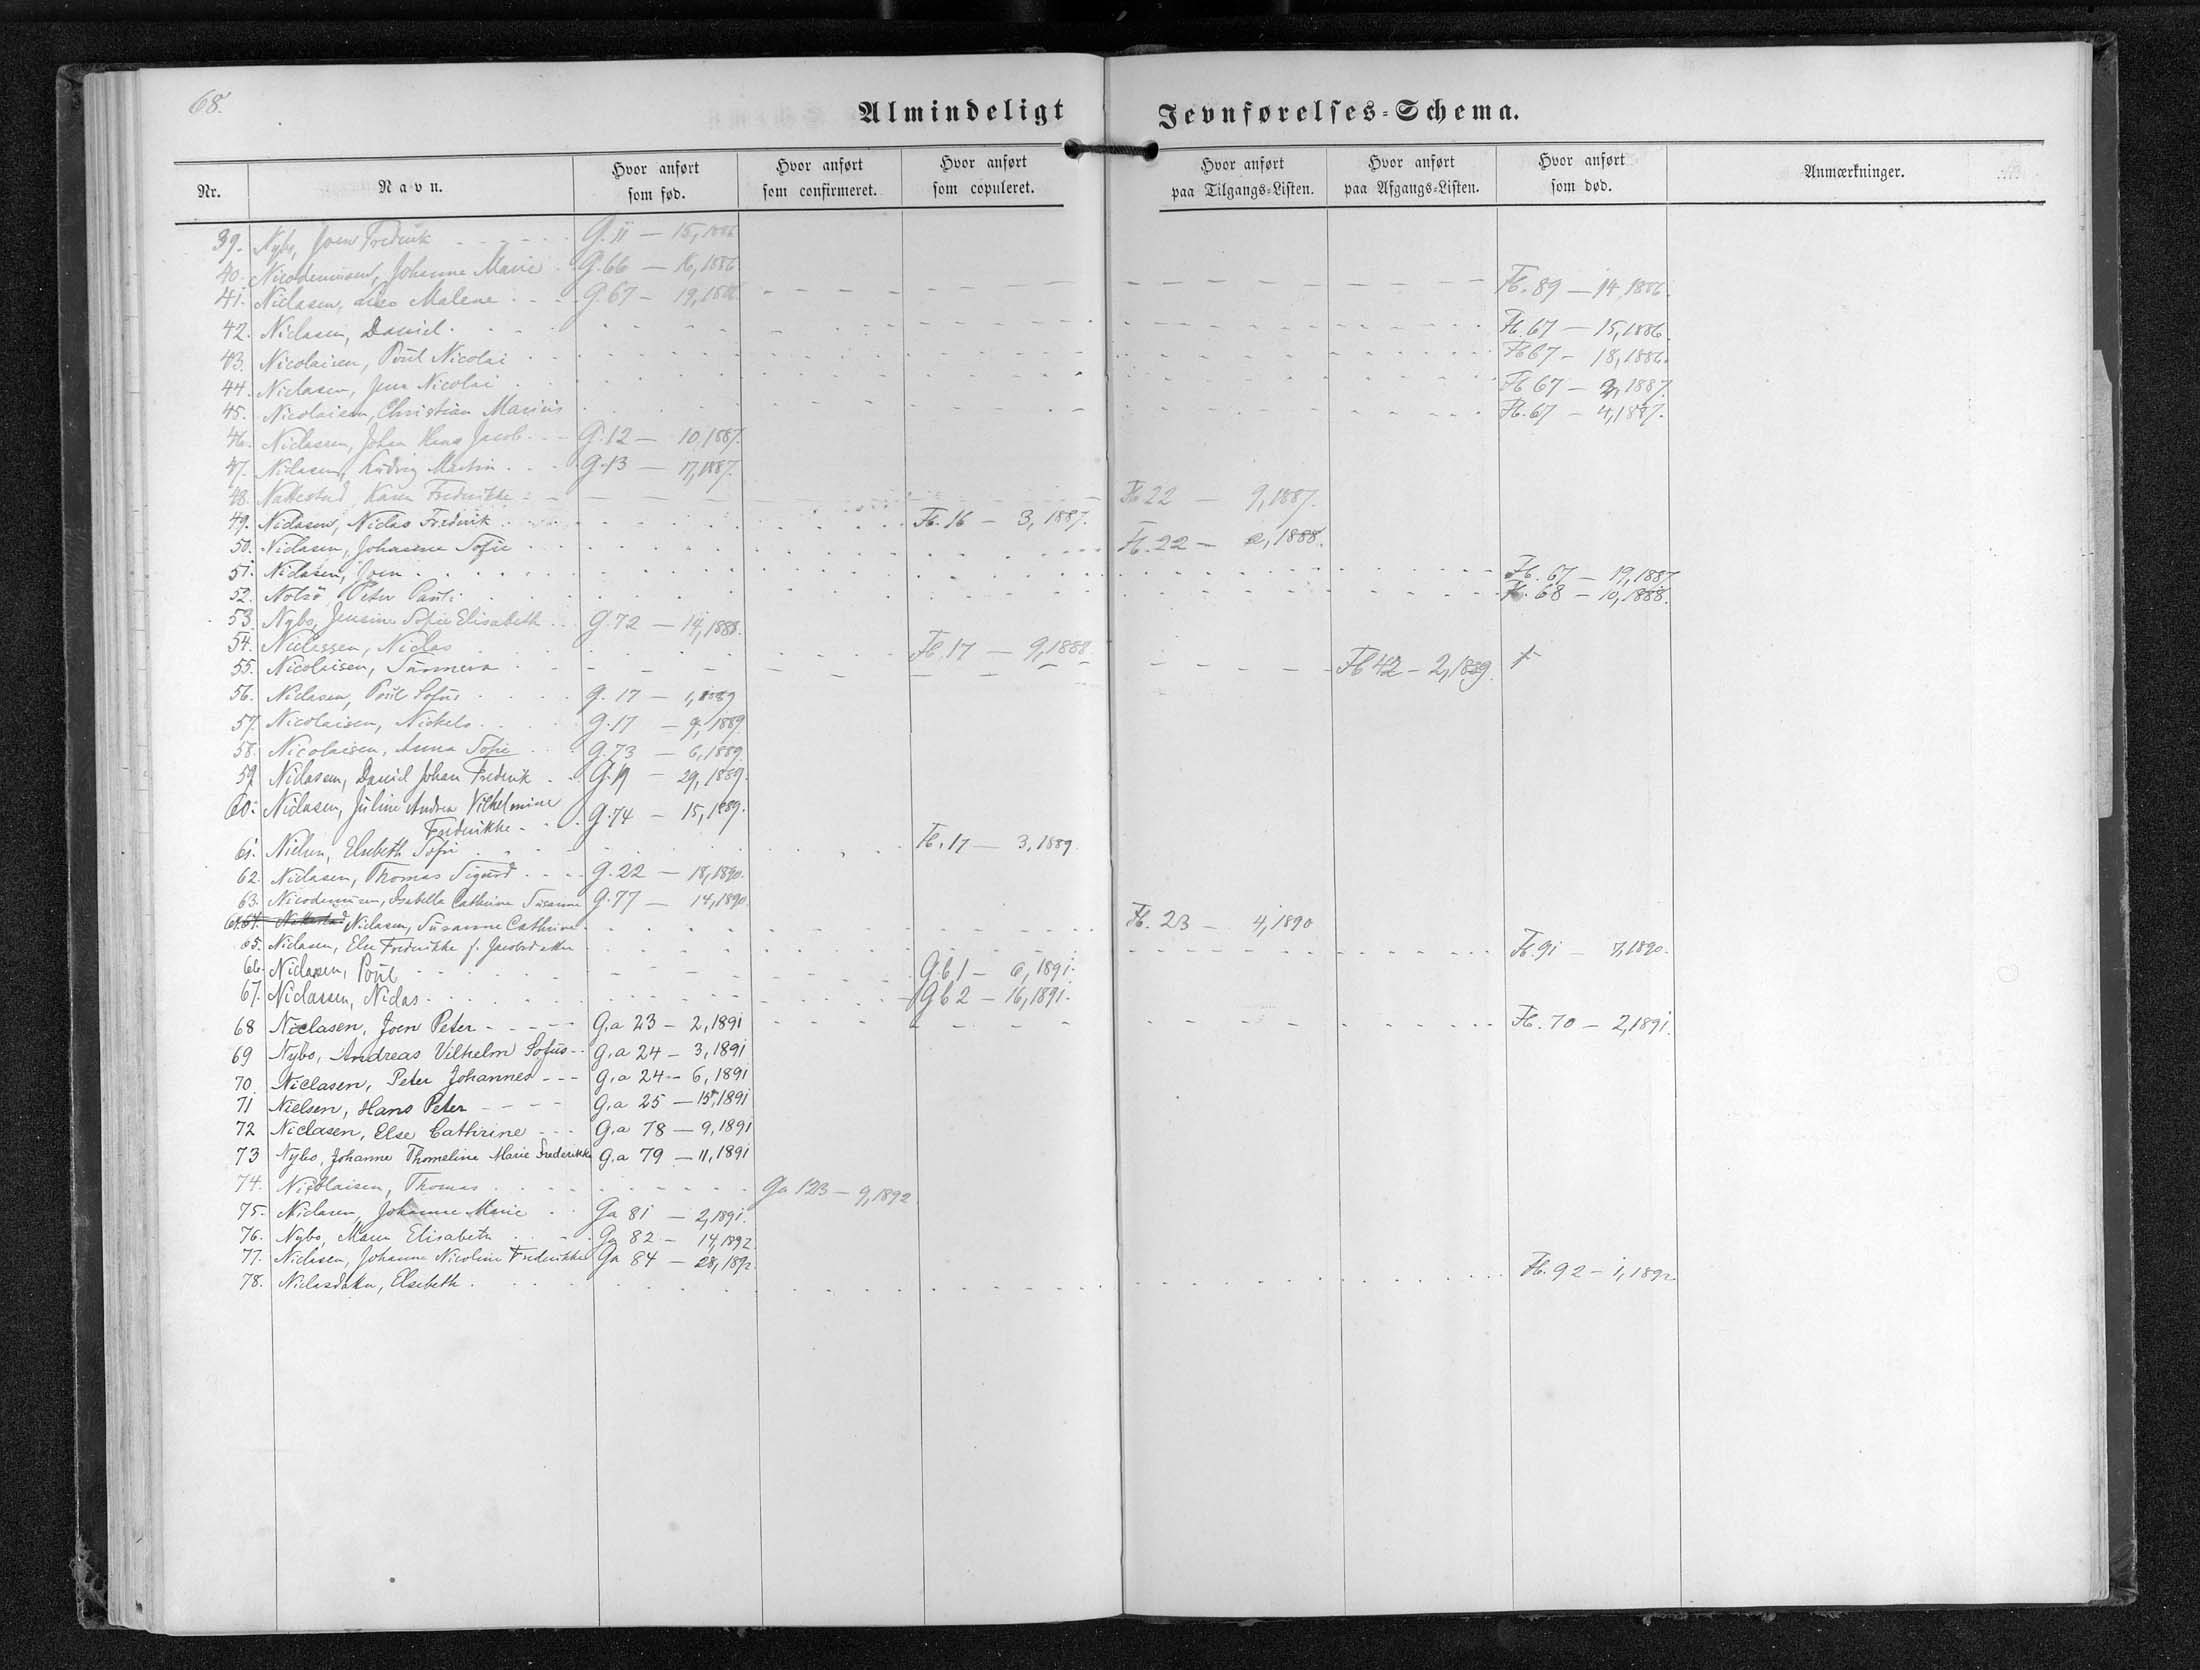 68.
Almindeligt Jevnførelses-Schema.
Nr. Navn. Hvor anført som fød. Hvor anført som confirmeret. Hvor anført som copuleret. Hvor anført paa Tilgangs-Listen. Hvor anført paa Afgangs-Listen. Hvor anført som død. Anmærkninger.
39. Nybo, Joen Fredrik - - - - - G. 11 — 15, 1886
40. Nicodemussen, Johanne Marie - G. 66 — 16, 1886
41. Niclasen, Malene - - - G. 67 - 19, 1886 - - - Fb. 89 — 14, 1886.
42. Niclasen, Daniel. - - - Fb. 67 — 15, 1886
43. Nicolaisen, Poül Nicolai - - - Fb 67 - 18, 1886.
44. Niclasen, Jens Nicolai - - - Fb 67 — 3, 1887.
45. Nicolaisen, Christian Marius - - - Fb. 67 — 4, 1887.
46. Niclassen, Johan Hans Jacob. - - G. 12 — 10, 1887.
47. Niclasen, Ludvig Martin - - - G. 13 — 17, 1887.
48. Nattestad, Karen Fredrikke - - - Fb 22 — 9, 1887.
49. Niclasen, Niclas Frederik - - - Fb. 16 — 3, 1887.
50. Niclasen, Johanne Sofie - - - Fb. 22 — 2, 1888.
51. Niclasen, Joen - - - Fb. 67 — 19, 1887
52. Nolsö, Peter Pauli - - - Fb. 68 — 10, 1888.
53. Nybo, Jensine Sofie Elisabeth - - G. 72 — 14, 1888.
54. Niclassen, Niclas - - - Fb. 17 — 9, 1888.
55. Nicolaisen, Sünneva - - - Fb 42 - 2, 1889. †
56. Niclasen, Poül Sofus - - - G. 17 — 1, 1889
57. Nicolaisen, Nickels - - - G. 17 — 9, 1889.
58. Nicolaisen, Anna Sofie - - - G. 73 — 6, 1889.
59. Niclasen, Daniel Johan Frederik - - G. 19 — 29, 1889.
60. Niclasen, Juline Andrea Vilhelmine
Fredrikke - - - G. 74 — 15, 1889.
61. Nielsen, Elsebeth Sofie - - - Fb. 17 — 3, 1889
62. Niclasen, Thomas Sigurd - - - G. 22 — 18, 1890.
63. Nicodemussen, Isabella Cathrine Susanne G. 77 — 14, 1890.
64. Niclasen, Susanne Cathrine - - - Fb. 23 — 4, 1890
65. Niclasen, Else Fredrikke f. Jacobsdatter - - - Fb. 91 — 7, 1890.
66. Niclasen, Poül - - - G.b, 1 — 6, 1891.
67. Niclassen, Niclas - - - G b 2 — 16, 1891.
68 Niclasen, Joen Peter - - - - G.a 23 — 2, 1891 - - - Fb. 70 — 2, 1891.
69 Nybo, Andreas Vilhelm Sofus - - G.a 24 — 3, 1891
70 Niclasen, Peter Johannes - - - G.a 24 — 6, 1891
71 Nielsen, Hans Peter - - - - G.a 25 — 15, 1891
72 Niclasen, Else Cathrine - - - G.a 78 — 9, 1891
73 Nybo, Johanne Thomeline Marie Frederikke G.a 79 — 11, 1891
74. Nicolaisen, Thomas - - - Ga 123 — 9, 1892
75. Niclasen, Johanne Marie - - Ga 81 — 2, 1891.
76. Nybo, Maren Elisabeth - - - Ga 82 — 14, 1892
77. Niclasen, Johanne Nicoline Fredrikke Ga 84 — 28, 1892.
78. Niclasdatter, Elsebeth - - - Fb. 92 — 1, 1892